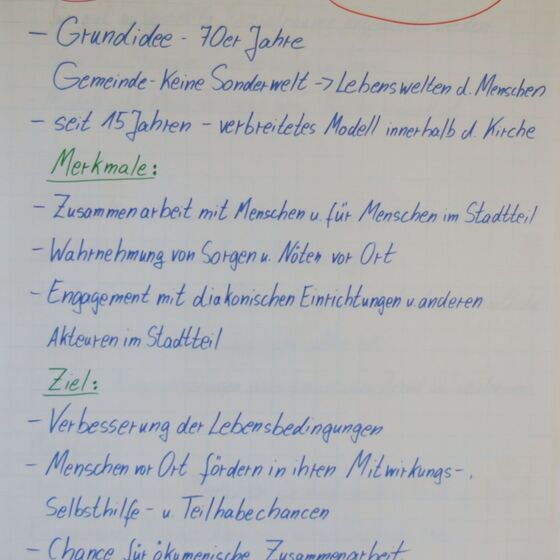 - Grundidee - 70er Jahre
Gemeinde - Keine Sonderwelt -> Lebenswelten d. Menschen
- seit 15 Jahren - verbreitetes Modell innerhalb d. Kirche
Merkmale:
- Zusammenarbeit mit Menschen u. für Menschen im Stadtteil
- Wahrnehmung von Sorgen u. Nöten vor Ort
- Engagement mit diakonischen Einrichtungen u. anderen
Akteuren im Stadtteil
Ziel:
- Verbesserung der Lebensbedingungen
- Menschen vor Ort fördern in ihren Mitwirkungs-,
Selbsthilfe- u. Teilhabechancen
- Chance für ökumenische Zusammenarbeit